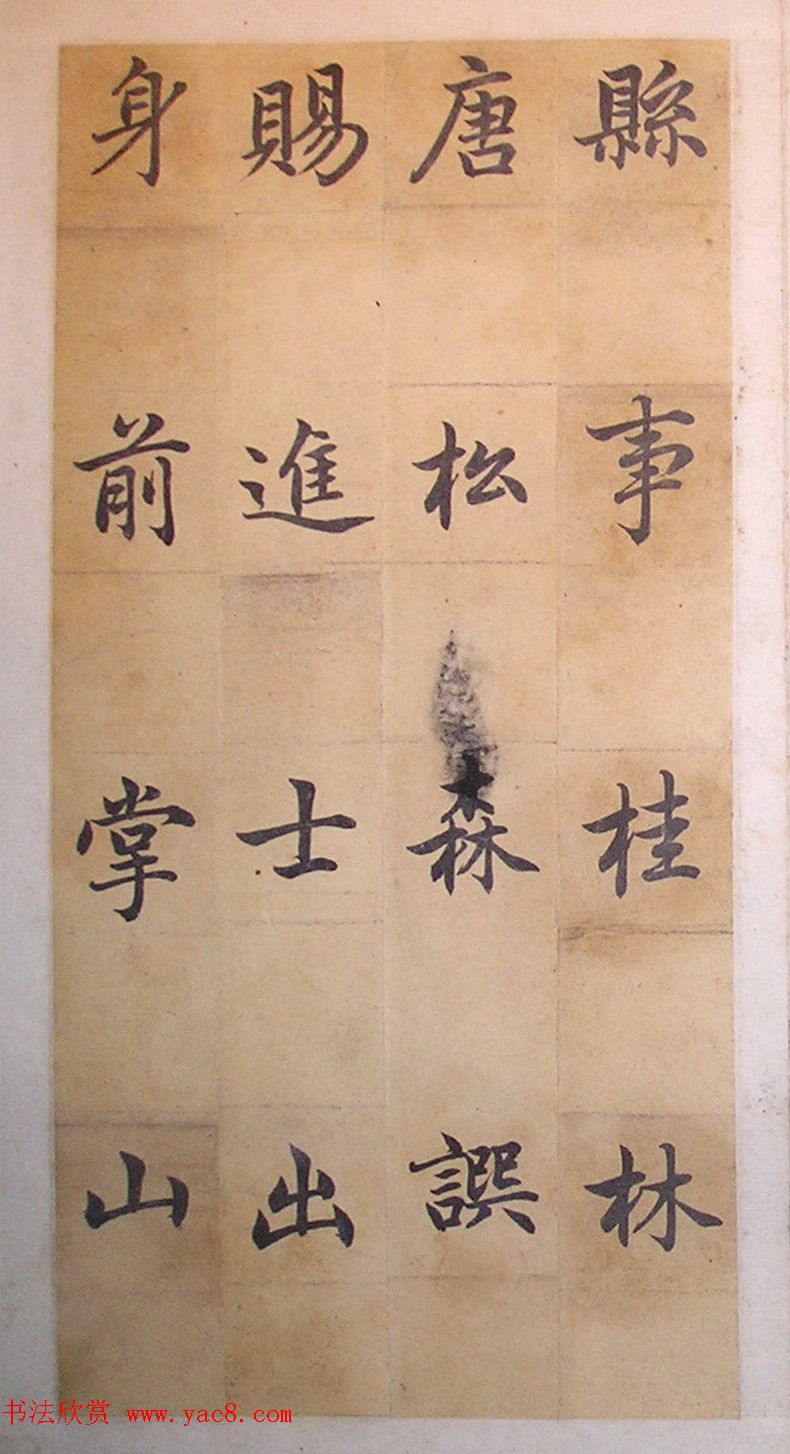 縣事桂林
唐松森譔
賜進士出
身前掌山
书法欣赏 www.yac8.com